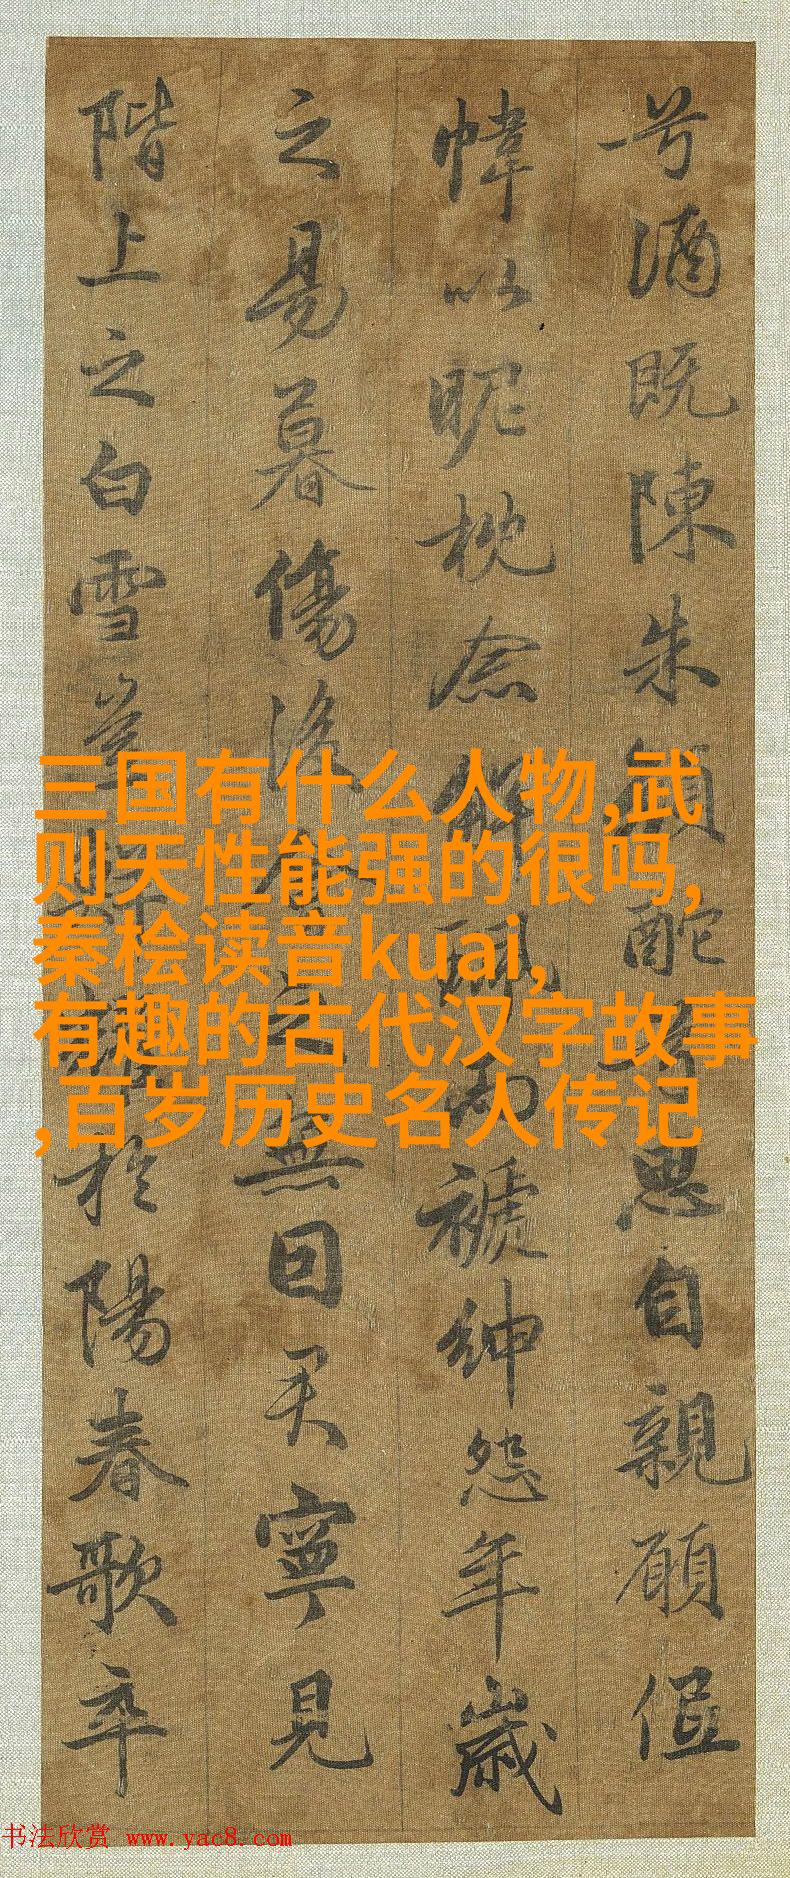 兮酒既陳朱顔酡兮思自親願低
幃以昵枕念解珮而褫紳怨年歲
之易暮傷後會之無因君寧見
階上之白雪豈鮮耀於陽春歌卒
三国有什么人物,武
则天性能强的很吗,
秦桧读音kuai,
有趣的古代汉字故事
,百岁历史名人传记
书法欣赏 www.yac8.com